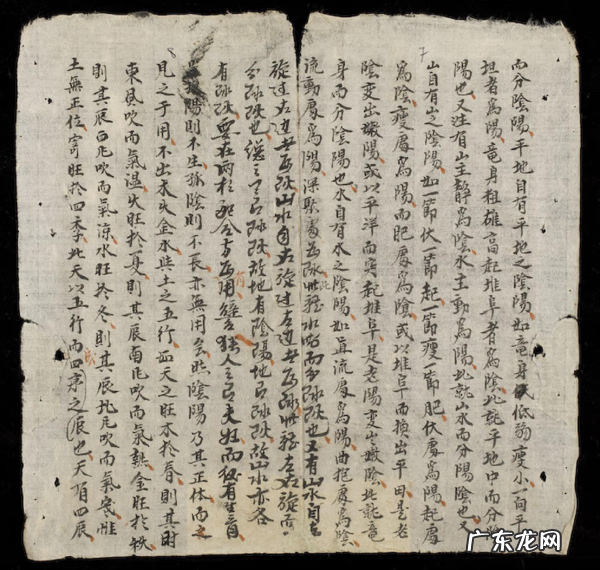 而分陰陽平地自有平地之陰陽如竜身低弱瘦小一自平
坦者為陽竜身粗雄高起堆阜者為陰此就平地中而分
陽也又注有山主靜為陰水主動為陽此就山水而分陽陰也又
山自有之陰陽如一節伏一節起一節瘦一節肥伏處為陽起處
為陰瘦處為陽而肥處為陰或以堆阜而換出平田是老
陰变出嫩陽或以平洋而突起堆阜是老陽变出嫩陰此就竜
身而分陰陽也水自有水之陰陽如直流處為陽曲抱處為陰
流動處為陽深聚處為陰此水而分也又有山水自左
旋过右边者為山水自右旋过左边者為左旋而
分也總之有陰陽故山水亦各
有要在兩相配合方為用譬猶人之有夫妇而後有生育
陽則不生孤陰則不長亦無用会然陰陽乃其正体而
見之于用不出夫金水與土之五行如天之旺木於春則其时
東風吹而氣温火旺於夏則其辰南風吹而氣熱金旺於秋
則其辰西风吹而氣凉水旺於冬則其辰北风吹而氣寒惟
土無正位寄旺於四季此天以五行而四序之辰也天有四辰
广东龙网